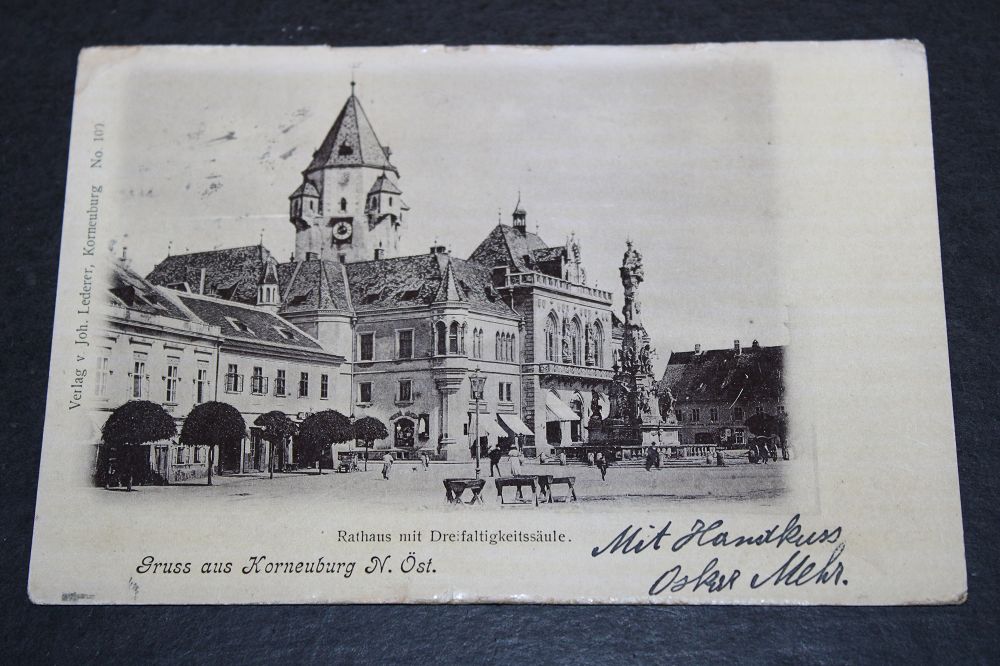 Verlag v. Joh. Lederer, Korneuburg No. 109
Rathaus mit Dreifaltigkeitssäule.
Gruss aus Korneuburg N. Öst.
Mit Handkuss
Oskar Mehr.